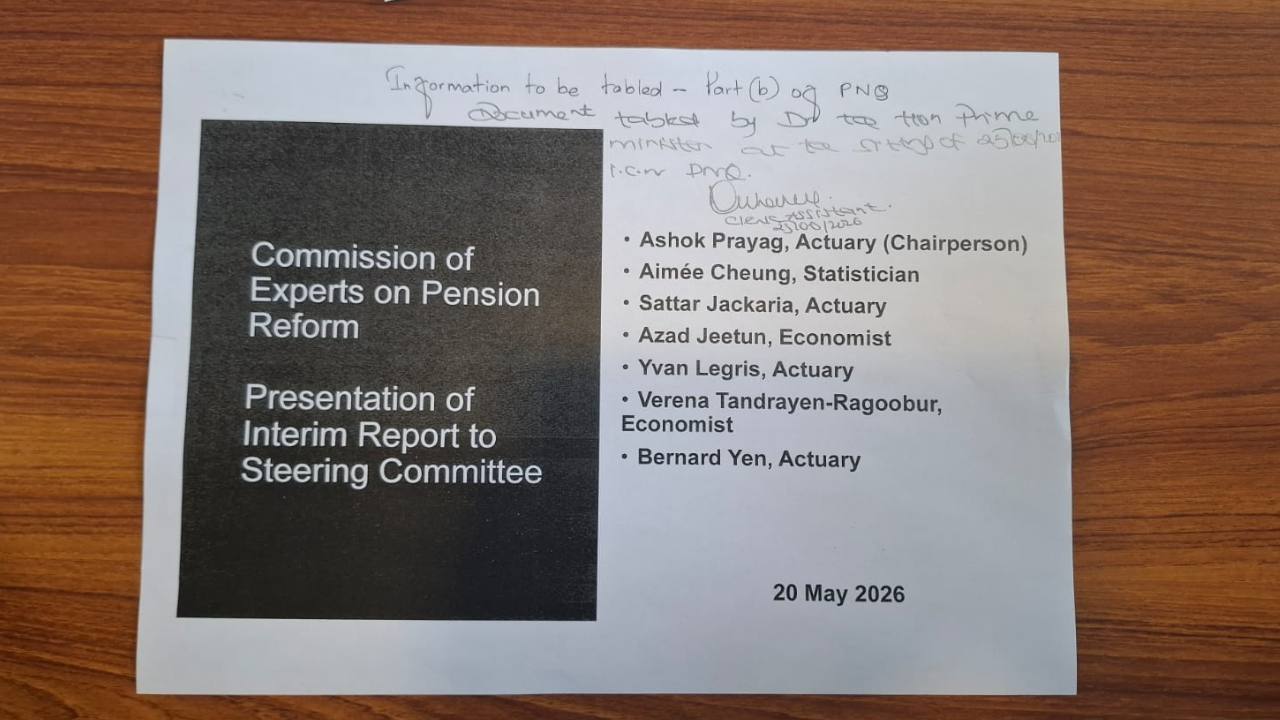 Information to be tabled - Part (b) of PNQ
Document tabled by Dr the Hon Prime
minister at the sitting of
i.c.w PNQ.
Clerk Assistant.
Commission of
Experts on Pension
Reform
Presentation of
Interim Report to
Steering Committee
• Ashok Prayag, Actuary (Chairperson)
• Aimée Cheung, Statistician
• Sattar Jackaria, Actuary
• Azad Jeetun, Economist
• Yvan Legris, Actuary
• Verena Tandrayen-Ragoobur,
Economist
• Bernard Yen, Actuary
20 May 2026